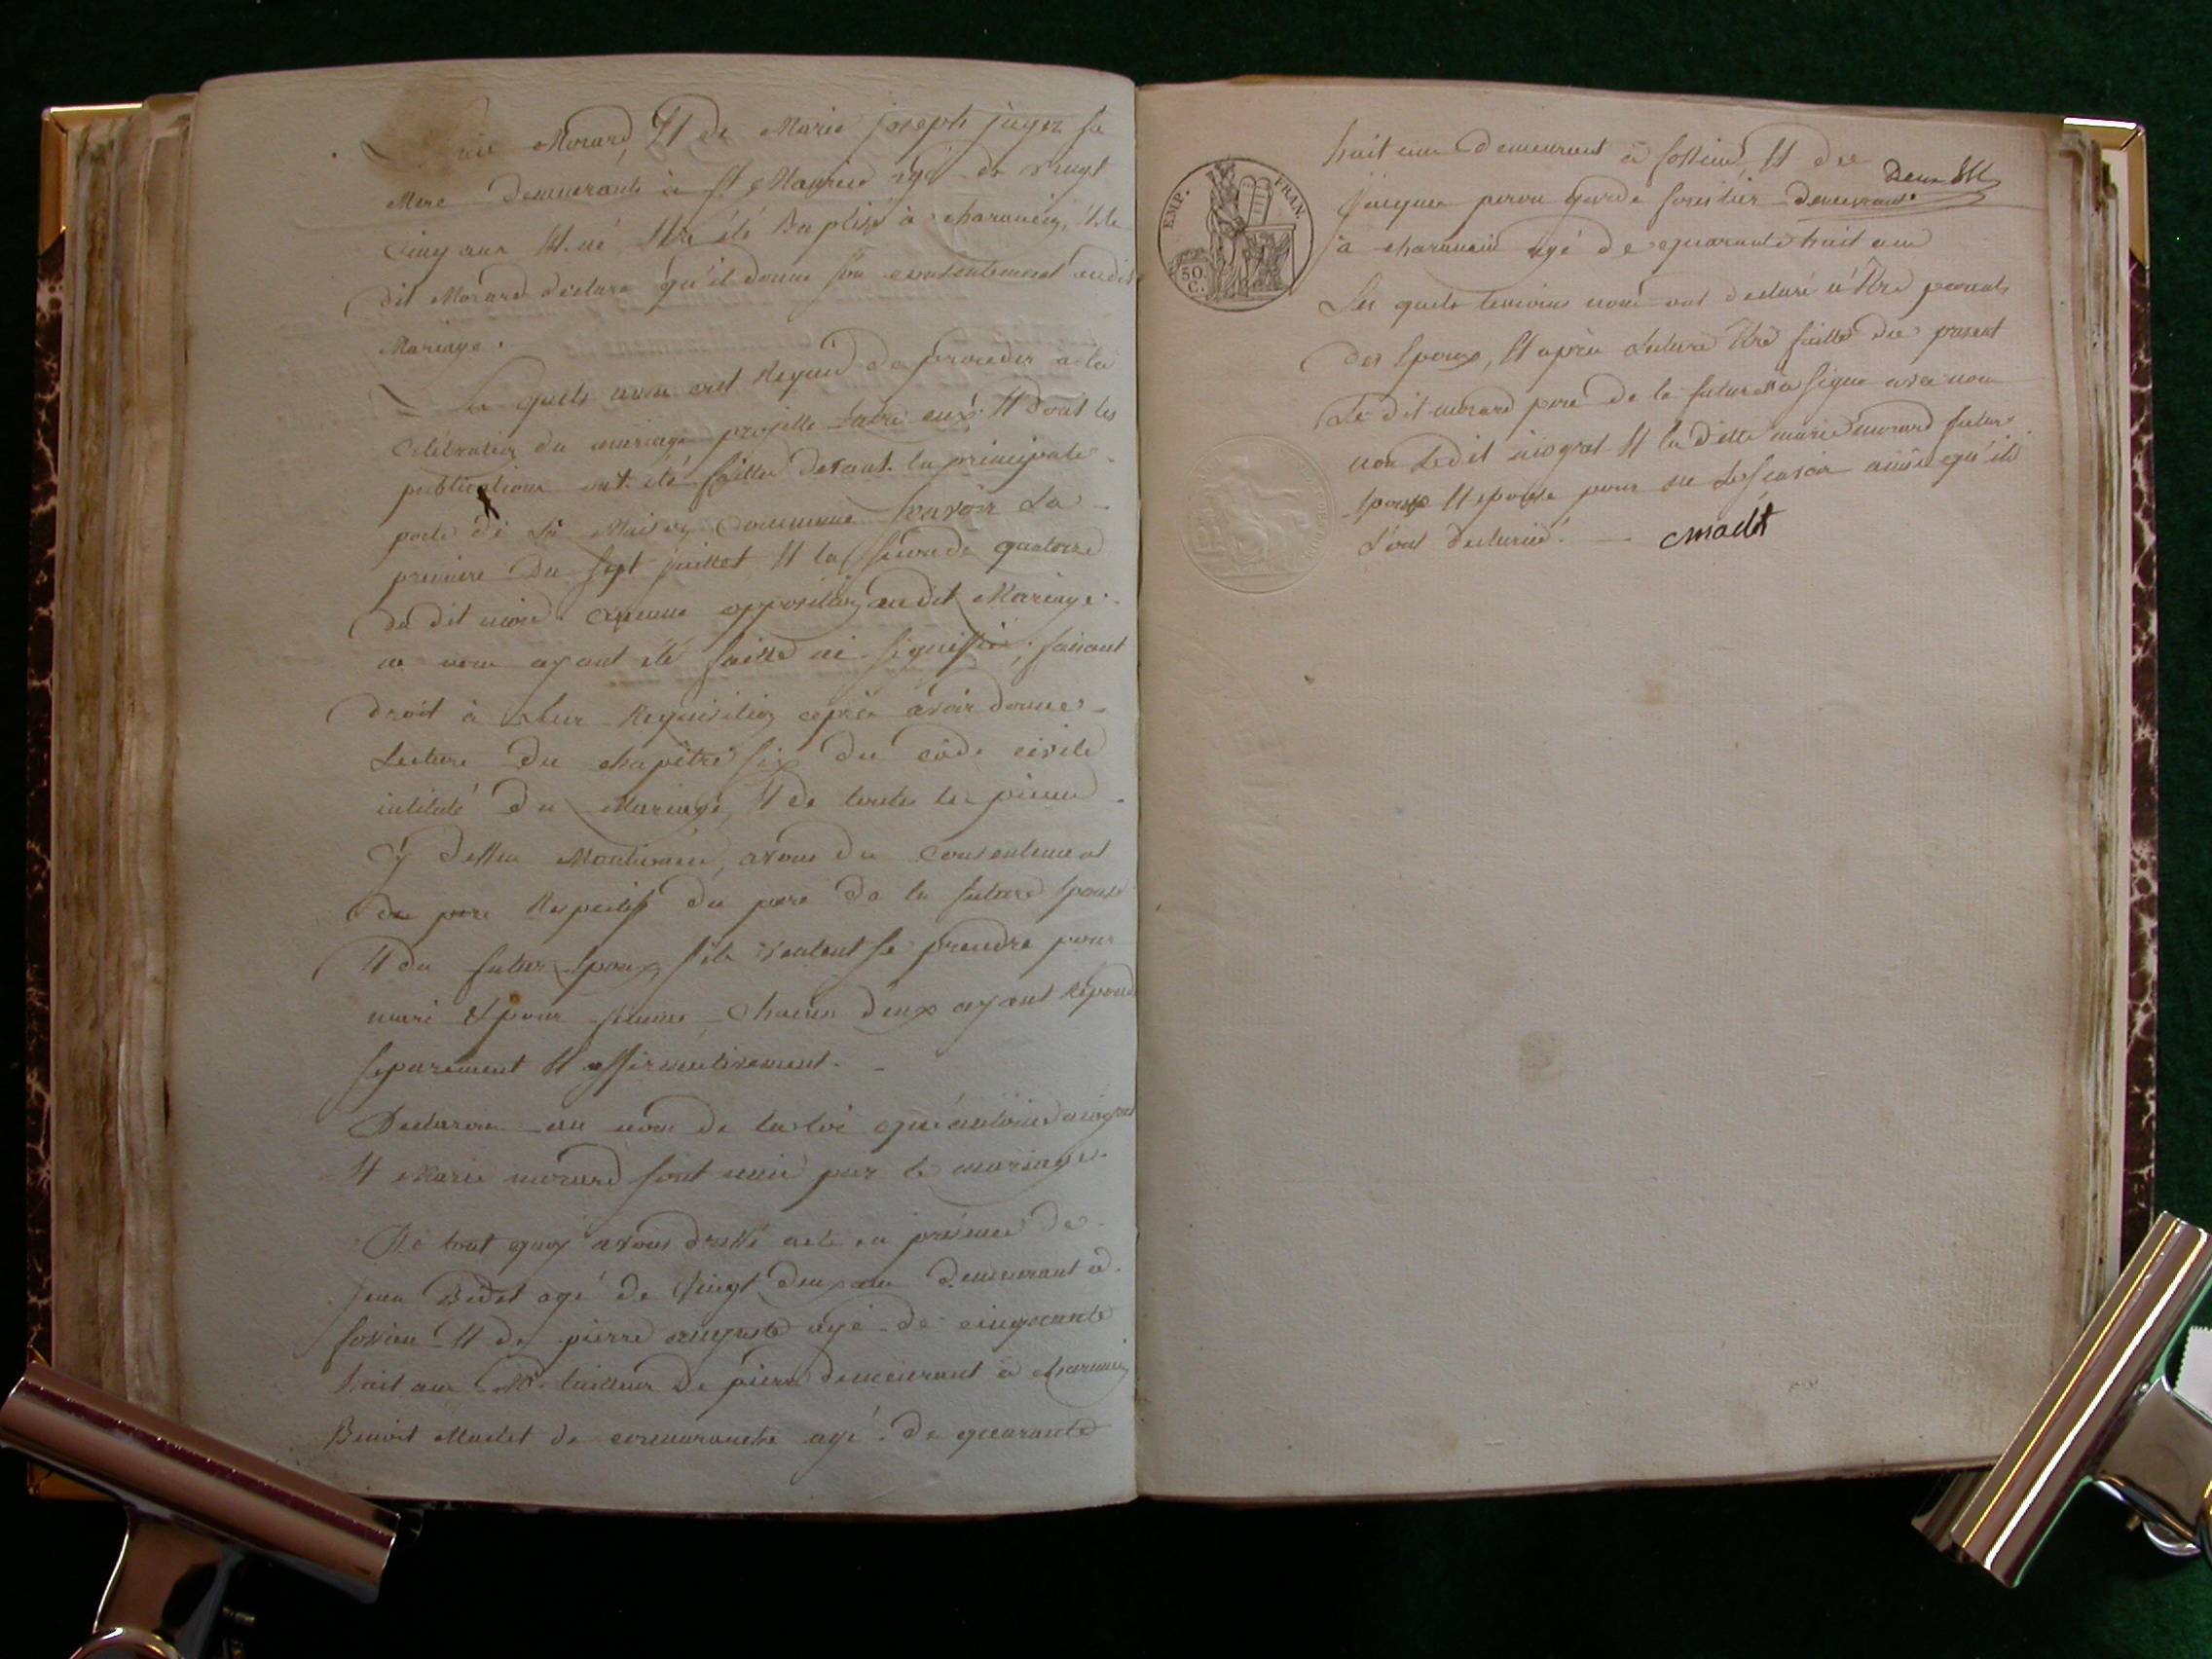 Morard, Et de Marie joseph juger sa
Mere Demeurants à St. Maurice agé de vingt
Cinq ans Et né, Etre été Baptisé à charancin, Et le
dit Morard déclare qu'il donne son consentement audit
Mariage.
Les quels nous ont Requis de procéder à la
Celebration du mariage projetté Entre eux Et Dont les
publications ont été faitte devant la principale
porte de La Maison Commune savoir La
premiere Du sept juillet Et la seconde quatorze
du dit mois. aucune opposition au dit Mariage
ne nous ayant été faitte ni signiffié, faisant
droit à Leur Requisition après avoir donné
Lecture Du chapitre six Du côde civile
intitulé Du Mariage, Et de toutes les pieces
Cy dessu Mentionnée, avons du Consentement
du pere Respectif du pere de la future Epouse
Et du futur Epoux, s'ils veulent se prendre pour
mari Et pour femme, Chacun d'eux ayant Répondu
separement Et affirmativement.
Declarons au nom de la loi que antoine
Et Marie morard sont unie par le mariage.
De tout quoy avons dressé acte en présence de
Jean Bedet agé de vingt deux ans Demeurant à
Et de pierre auguste agé de cinquante
huit ans tailleur De pierre demeurant à charancin
Benoit Maclet de agé de quarante
huit ans Demeurant à Et de
Jacques garde forestier Demeurant
à charancin agé de quarante huit ans
EMP. FRAN.
50 C.
Les quels temoins nous ont declaré n'être parents
Des Epoux, Et après Lecture Etre faitte du present
Le dit morard pere de la future a signé avec nous
non Ledit Et la ditte marie morard futur
Epoux Et epouse pour ne Le scavoir ainsi qu'ils
L'ont declaré.
cmaclet